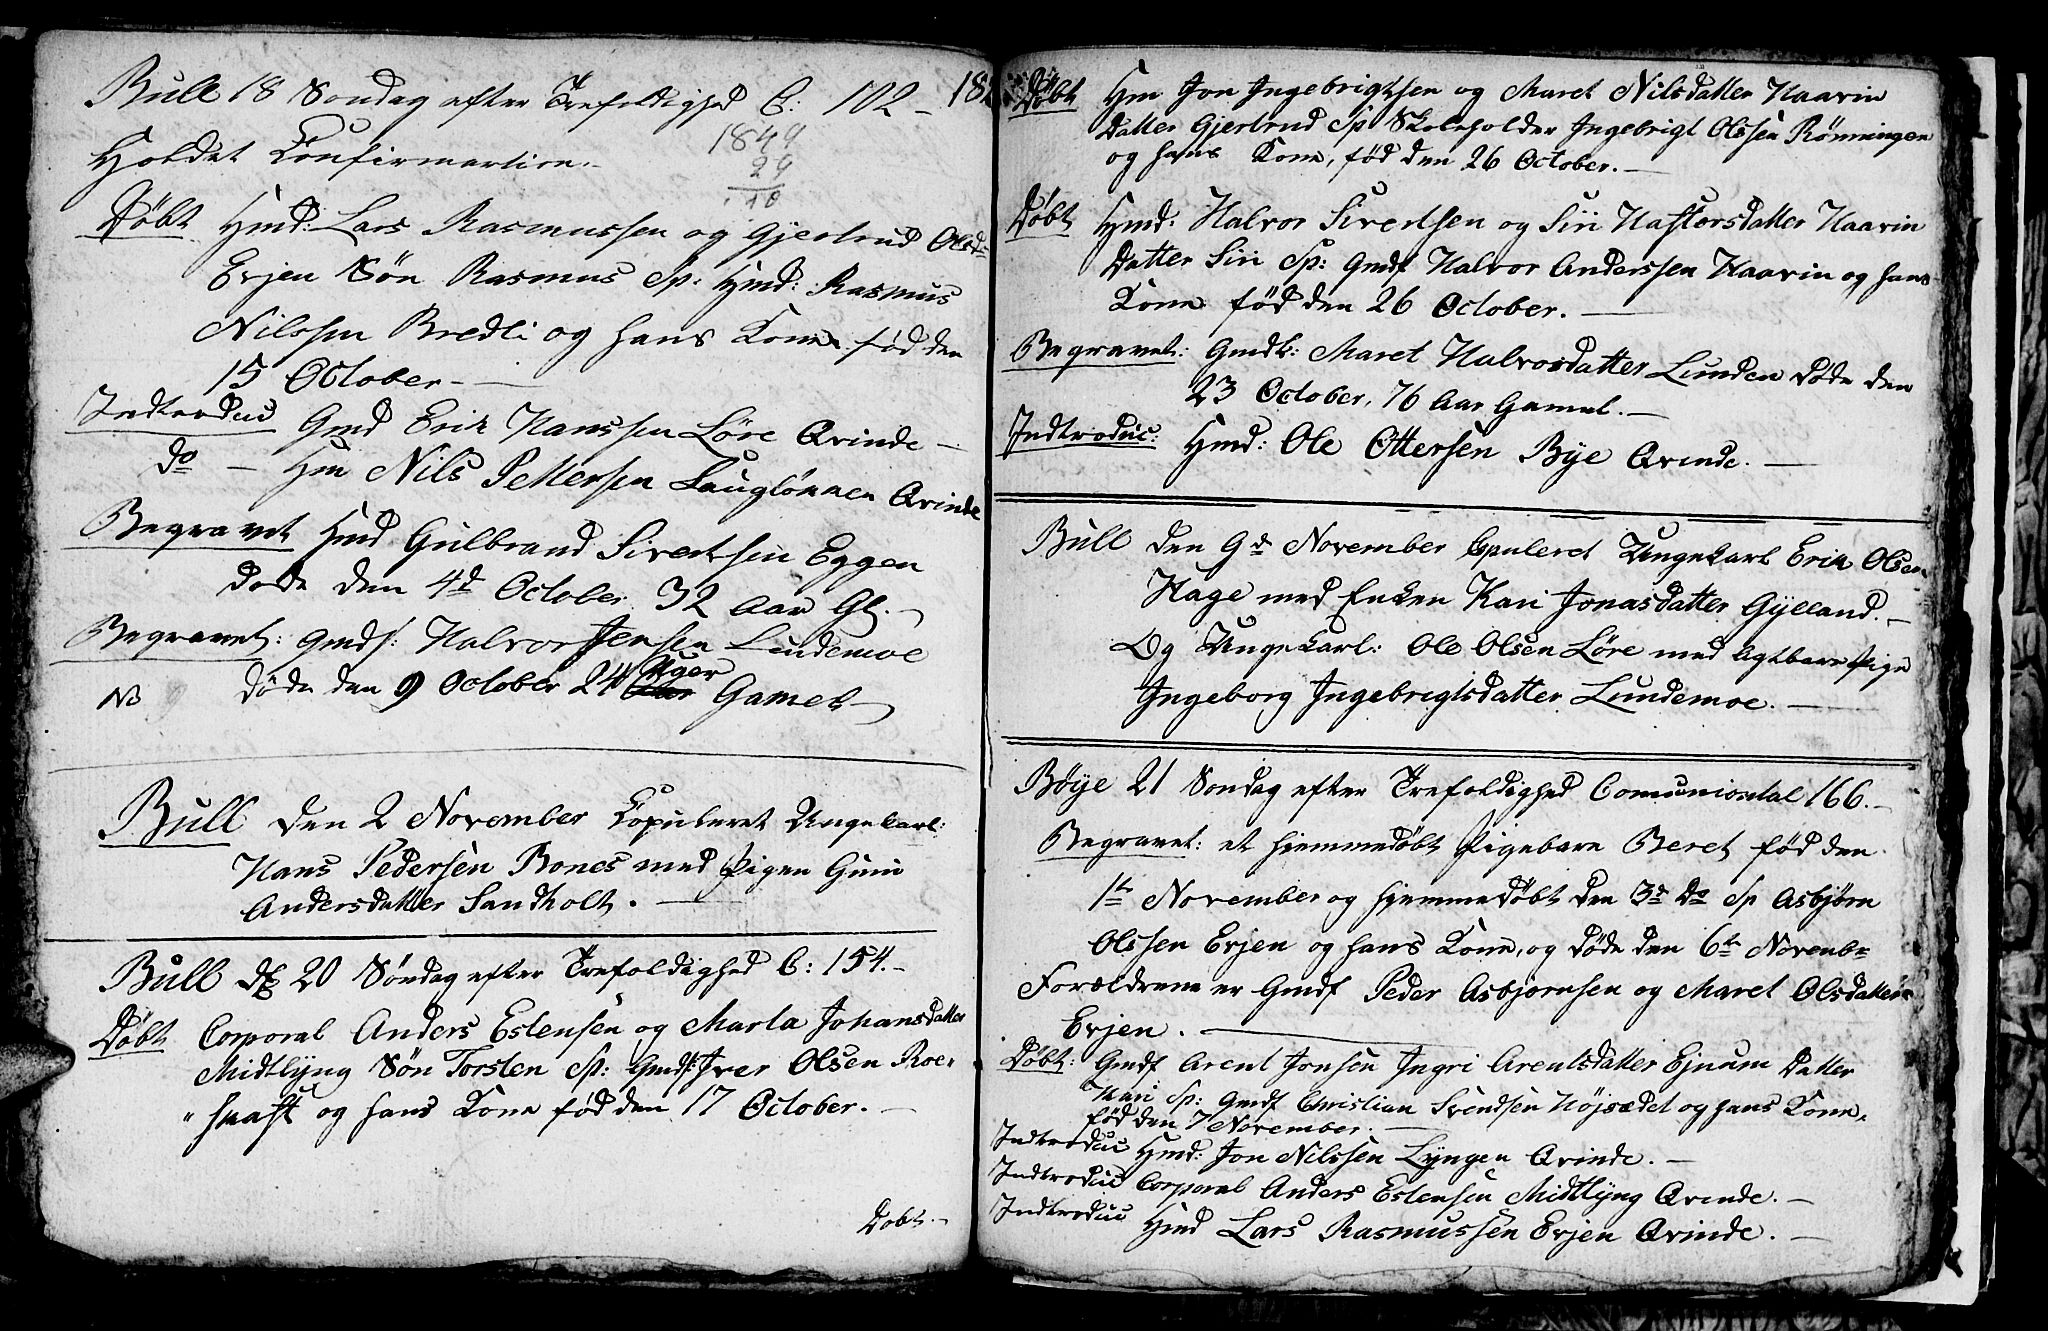 Bull 18 Søndag efter Trefoldighed C: 102 –
Holdet Confirmartion.
1849
29
Døbt Hmd: Lars Rasmussen og Gjertrud Olsd
Evjen Søn Rasmus Sp: Hmd: Rasmus
Nilssen Bredli og hans Kone fød den
15 October –
Indtroduc Gmd Erik Hanssen Löre Qvinde –
do – Hm Nils Pettersen Qvinde
Begravet Hmd Gulbrand Sivertsen Eggen
døde den 4d October 32 Aar Gl. –
Begravet: Gmds: Halvor Jensen Lindemoe
NB døde den 9 October 24 Uger Gamel –
Bull den 2 November Copuleret Ungekarl:
Hans Pedersen Bones med Pigen Guni
Andersdatter Sandholt. –
Bull 20 Søndag efter Trefoldighed C: 154. –
Døbt Corporal Anders Estensen og Marta Johansdatter
Midtlyng Søn Torsten Sp: Gmdf: Iver Olsen Roe-
„haft og hans Kone fød den 17 October. –
Døbt. –
18
Døbt Hm Jon Ingebrigtsen og Maret Nilsdatter Haavin
Datter Gjertrud Sp Skoleholder Ingebrigt Olssen Rönningen
og hans Kone, fød den 26 October. –
Døbt Hmd: Halvor Sivertsen og Siri Haftorsdatter Haavin
Datter Siri Sp: Gmdf Halvor Anderssen Haavin og hans
Kone fød den 26 October. –
Begravet: Gmdk: Maret Halvorsdatter Lunden døde den
23 October, 76 Aar Gamel. –
Indtroduc: Hmd: Ole Ottersen Bye Qvinde. –
Bull den 9d November Copuleret Ungekarl Erik Olsen
Hage med Enken Kari Jonasdatter Gylland. –
Og Ungekarl: Ole Olsen Löre med Agtbare Pige
Ingeborg Ingebrigtsdatter Lundemoe. –
Böye 21 Søndag efter Trefoldighed Comuniontal 166. –
Begravet: et hjemmedøbt Pigebarn Beret fød den
1te November og hjemmedøbt den 3d do Sp Asbjørn
Olssen Evjen og hans Kone, og døde den 6te Novenb=
Forældrene er Gmdf Peder Asbjørnsen og Maret Olsdatter
Evjen. –
Døbt: Gmdf Arent Jonsen Ingri Arentsdatter Ejnum Datter
Kari Sp: Gmdf Christian Svendsen Höjsædet og hans Kone,
fød den 7 November. –
Indtroduc Hmd: Jon Nilssen Lyngen Qvinde. –
Indtroduc Corporal Anders Estensen Midtlyng Qvende. –
Indtroduc Hmd Lars Rasmussen Evjen Qvinde. –